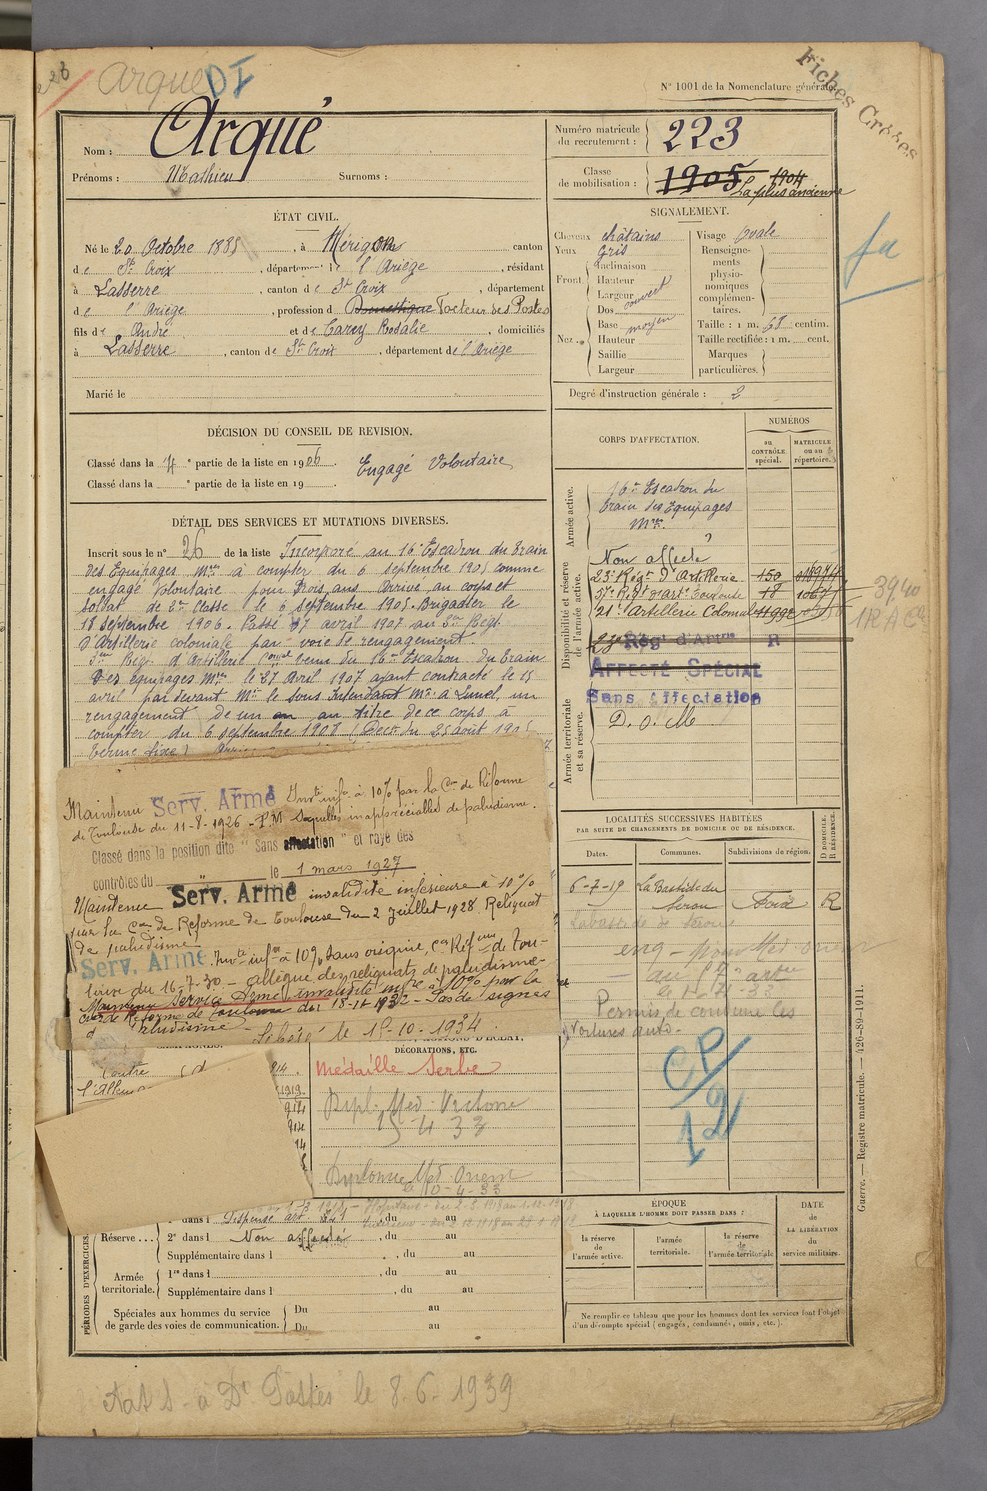 Arqué DI
N° 1001 de la Nomenclature générale.
Fiches Créées
Nom : Arqué
Prénoms : Mathieu Surnoms :
Numéro matricule du recrutement : 223
Classe de mobilisation : 1905 1904
La plus ancienne
ÉTAT CIVIL.
Né le 20 Octobre 1885, à Mérigon canton
de Ste Croix, département de l'Ariège, résidant
à Lasserre, canton de Ste Croix, département
de l'Ariège, profession de Domestique Facteur des Postes
fils de André et de Carey Rosalie, domiciliés
à Lasserre, canton de Ste Croix, département de l'Ariège
Marié le
SIGNALEMENT.
Cheveux châtains
Yeux gris
Front. Inclinaison
Hauteur
Largeur
Nez. Dos couvert
Base moyen
Hauteur
Saillie
Largeur
Visage Ovale
Renseignements physionomiques complémentaires.
Taille : 1 m. 68 centim.
Taille rectifiée : 1 m. cent.
Marques particulières.
Degré d'instruction générale : 2
fa
DÉCISION DU CONSEIL DE REVISION.
Classé dans la 4e partie de la liste en 1906. Engagé Volontaire
Classé dans la e partie de la liste en 19
DÉTAIL DES SERVICES ET MUTATIONS DIVERSES.
Inscrit sous le n° 26 de la liste Incorporé au 16e Escadron du Train
des Equipages Mres à compter du 6 septembre 1905 comme
engagé Volontaire pour trois ans. Arrivé au corps et
soldat de 2me classe le 6 septembre 1905. Brigadier le
18 septembre 1906. Passé 27 avril 1907 au 3me Regt
d'Artillerie coloniale par voie de rengagement.
3me Regt d'Artillerie Conial venu du 16me Escadron du Train
des équipages Mres le 27 Avril 1907 ayant contracté le 15
avril par devant Mr le Sous Intendant Mre à Lunel, un
rengagement de un an au titre de ce corps à
compter du 6 septembre 1908 (Decr. du 25 août 1905
terme fixe)
Maintenu Serv. Armé Invté infre à 10% par la Con de Réforme
de Toulouse du 11-8-1926 - P.M. Sequelles inappréciables de paludisme.
Classé dans la position dite "Sans affectation" et rayé des
contrôles du le 1 mars 1927
Maintenu Serv. Armé invalidité inférieure à 10%
par la Con de Réforme de Toulouse du 2 Juillet 1928. Reliquat
de paludisme
Serv. Armé Invté infre à 10% sans origine, Con Réfme de Tou-
louse du 16-7-30 - allègue des reliquats de paludisme-
Maintenu Service Armé invalidité infre à 10% par la
Con de Réforme de Toulouse du 18-11-1932 - Pas de signes
de paludisme - Libéré le 15-10-1934.
CORPS D'AFFECTATION.
NUMÉROS
au CONTRÔLE spécial.
MATRICULE ou au répertoire.
Armée active.
16e Escadron du
train des Equipages
Mres
Disponibilité et réserve de l'armée active.
Non affecté
23e Régt d'Artillerie 150
57e Régt d'Art Toulouse 18
21e Artillerie Coloniale
3940
1 R A C
23e Rég' d'Artie R
AFFECTÉ SPÉCIAL
Sans Affectation
Armée territoriale et sa réserve.
D. O. M
LOCALITÉS SUCCESSIVES HABITÉES
PAR SUITE DE CHANGEMENTS DE DOMICILE OU DE RÉSIDENCE.
Dates. Communes. Subdivisions de région. D DOMICILE. R RÉSIDENCE.
6-7-19 La Bastide du Serou Foix R
Labastide de Serou
Permis de conduire les
Voitures auto-
CP/12
CAMPAGNES.
Contre
l'Allem
DÉCORATIONS, ETC.
Médaille Serbe
Dipl. Méd. Victoire
15 4 33
Diplôme Méd. Orient
PÉRIODES D'EXERCICES.
Réserve ...
1er dans l Dispensé , du au
2e dans l Non affecté , du au
Supplémentaire dans l , du au
Armée territoriale.
1re dans l , du au
Supplémentaire dans l , du au
Spéciales aux hommes du service de garde des voies de communication.
Du au
Du au
ÉPOQUE
À LAQUELLE L'HOMME DOIT PASSER DANS :
la réserve de l'armée active.
l'armée territoriale.
la réserve de l'armée territoriale
DATE de LA LIBÉRATION du service militaire.
Ne remplir ce tableau que pour les hommes dont les services font l'objet
d'un décompte spécial (engagés, condamnés, omis, etc.).
Guerre. — Registre matricule. — 426-89-1911.
le 8.6.1939